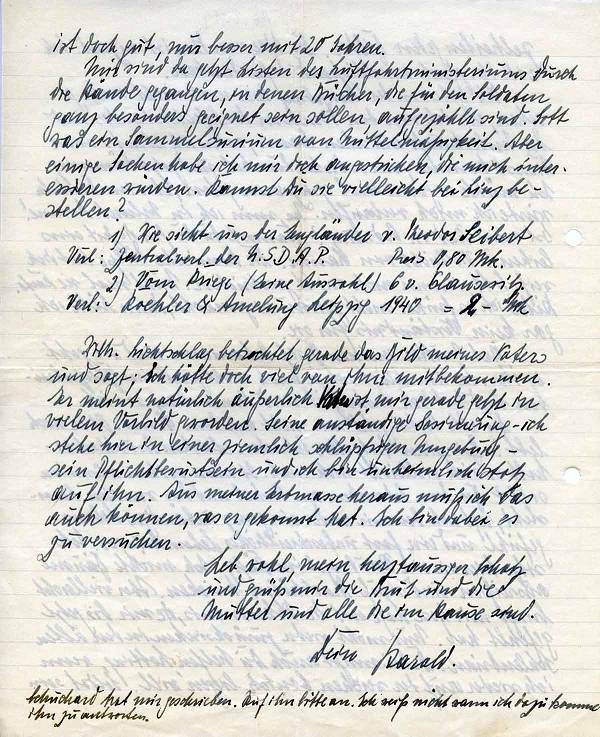 ist doch gut, nur besser mit 20 Jahren.
Mir sind da jetzt Listen des Luftfahrtministeriums durch
die Hände gegangen, in denen Bücher, die für den Soldaten
ganz besonders geeignet sein sollen, aufgezählt sind. Gott
was ein Sammelsurium von Mittelmässigkeit. Aber
einige Sachen habe ich mir doch angestrichen, die mich inter-
essieren würden. Kannst Du sie vielleicht bei be-
stellen?
1) Wie sieht uns der Engländer v. Theodor Seibert
Verl: Zentralverl. der N.S.D.A.P. Preis 0,80 Mk.
2) Vom Kriege (Eine Auswahl) C v. Clausewitz.
Verl: Koehler & Amelung Leipzig 1940 = 2 - Mk
Lichtschlag betrachtet gerade das Bild meines Vaters
und sagt; Ich hätte doch viel von ihm mitbekommen.
Er meint natürlich äußerlich ist mir gerade jetzt in
vielem Vorbild geworden. Seine anständige Gesinnung - ich
stehe hier in einer ziemlich schlüpfrigen Umgebung -
sein Pflichtbewusstsein und ich bin unheimlich stolz
auf ihn. Aus meiner Erbmasse heraus muß ich das
auch können, was er gekonnt hat. Ich bin dabei es
zu versuchen.
Leb wohl, mein herztausiger Schatz
und grüß mir die Brut und die
Mutter und alle die im Hause sind.
Dein Harald.
Schuchard hat mir geschrieben. Ruf ihn bitte an. Ich weiß nicht wann ich dazu komme
ihm zu antworten.